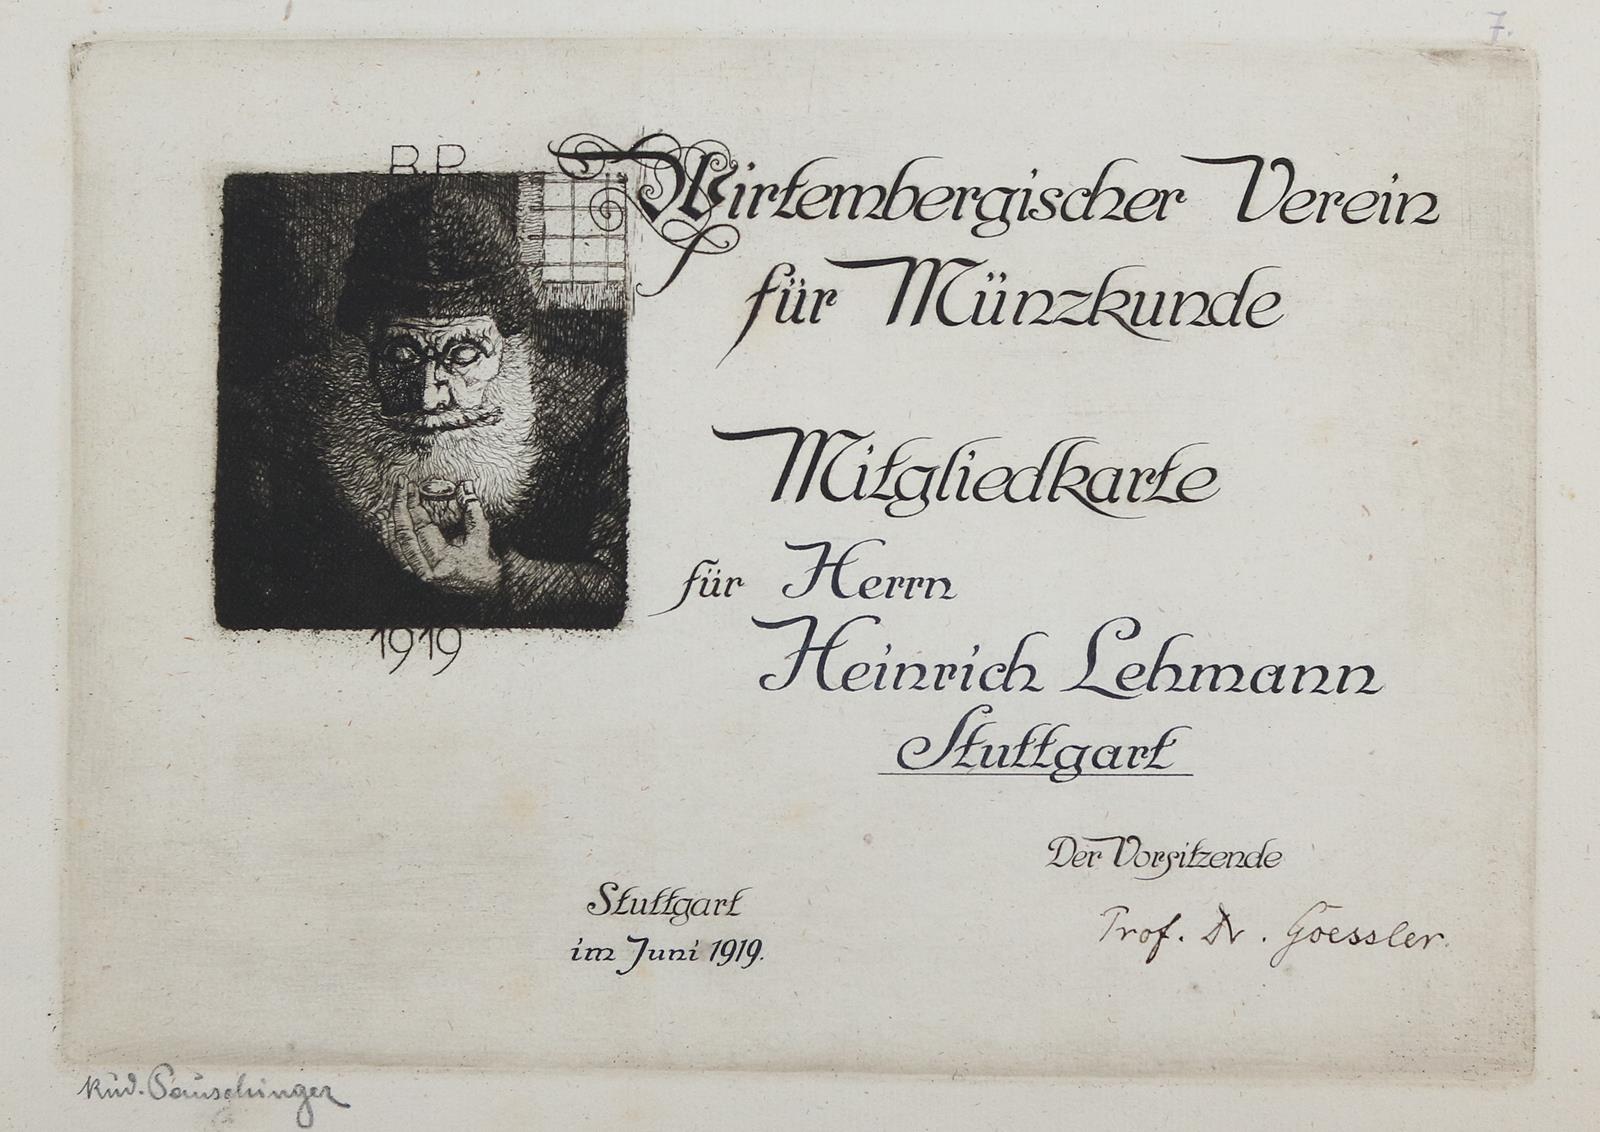 7.
R.P.
Wirtembergischer Verein
für Münzkunde
Mitgliedkarte
für Herrn
Heinrich Lehmann
Stuttgart
1919
Der Vorsitzende
Prof. Dr. Goessler.
Stuttgart
im Juni 1919.
Rud. Pauschinger